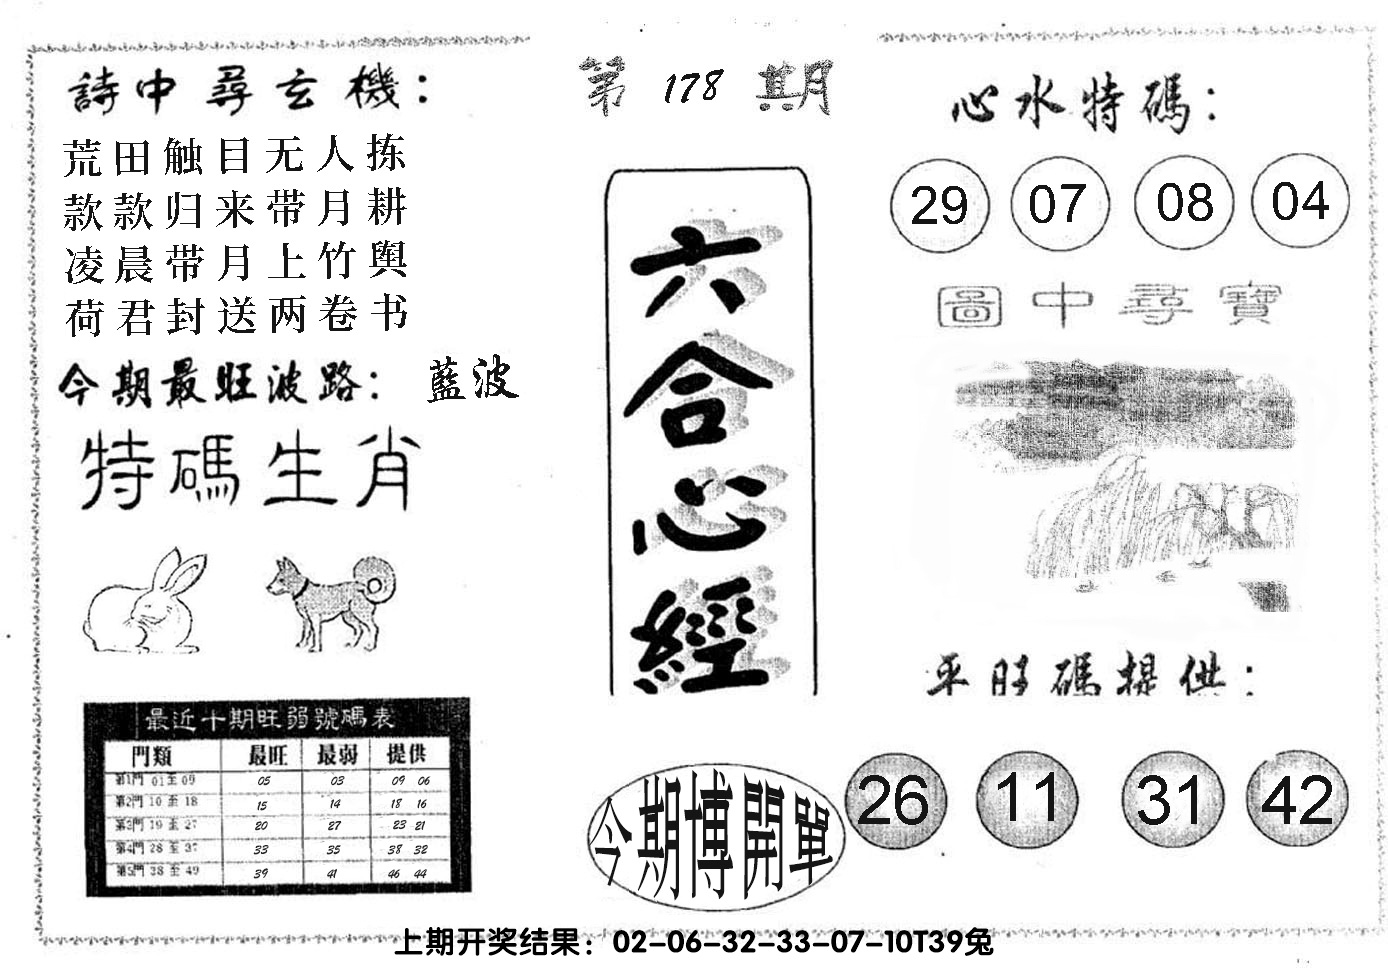 詩中尋玄機：
荒田触目无人拣
款款归来带月耕
凌晨带月上竹舆
荷君封送两卷书
今期最旺波路： 藍波
特碼生肖
最近十期旺弱號碼表
門類 最旺 最弱 提供
第1門 01至09 05 03 09 06
第2門 10至18 15 14 18 16
第3門 19至27 20 27 23 21
第4門 28至37 33 35 38 32
第5門 38至49 39 41 46 44
第 178 期
六合心經
今期博開單
心水特碼：
29 07 08 04
圖中尋寶
平旺碼提供：
26 11 31 42
上期开奖结果：02-06-32-33-07-10T39兔